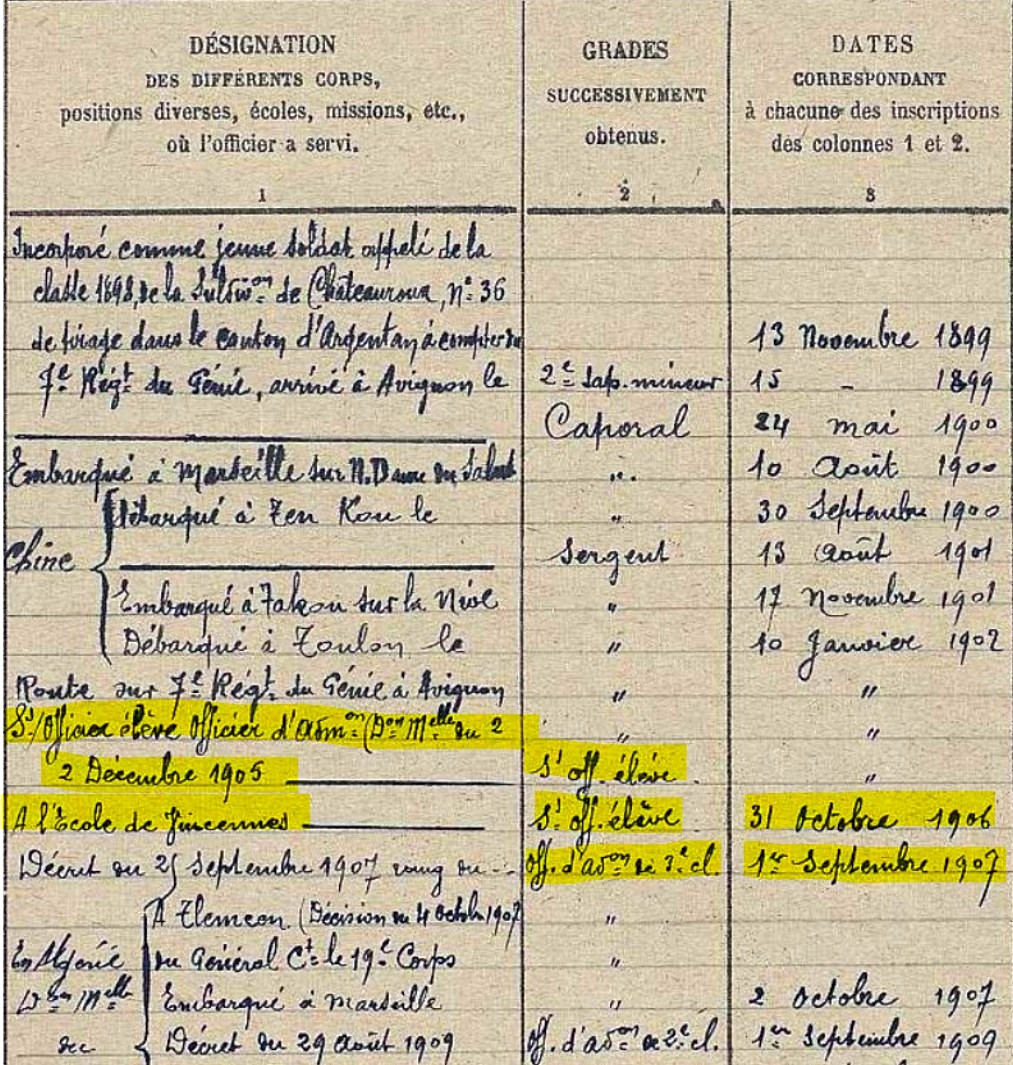 DÉSIGNATION
DES DIFFÉRENTS CORPS,
positions diverses, écoles, missions, etc.,
où l'officier a servi.
1
GRADES
SUCCESSIVEMENT
obtenus.
2
DATES
CORRESPONDANT
à chacune des inscriptions
des colonnes 1 et 2.
3
Incorporé comme jeune soldat appelé de la
classe 1898, de la de Châteauroux, N° 36
de tirage dans le canton d'Argentan à compter du 13 Novembre 1899
7e Régt du Génie, arrivé à Avignon le 2e Sap. mineur 15 - 1899
Caporal 24 mai 1900
Embarqué à Marseille sur N. Dame du Salut " 10 Août 1900
Débarqué à Ten Kou le " 30 Septembre 1900
Chine Sergent 13 Août 1901
Embarqué à Takou sur la Nive " 17 Novembre 1901
Débarqué à Toulon le " 10 Janvier 1902
Route sur 7e Régt du Génie à Avignon " "
St/Officier élève Officier d'Admon (Don Melle du 2 " "
2 Décembre 1905 St off. élève "
A l'École de Vincennes St off. élève 31 Octobre 1906
Décret du 25 Septembre 1907 rang du Off. d'adon de 3e cl. 1er Septembre 1907
A Tlemcen (Décision du 4 Octobre 1907 "
En Algérie du Général Ct le 19e Corps "
Don Melle Embarqué à Marseille " 2 Octobre 1907
Décret du 29 Août 1909 Off. d'adon de 2e cl. 1er Septembre 1909